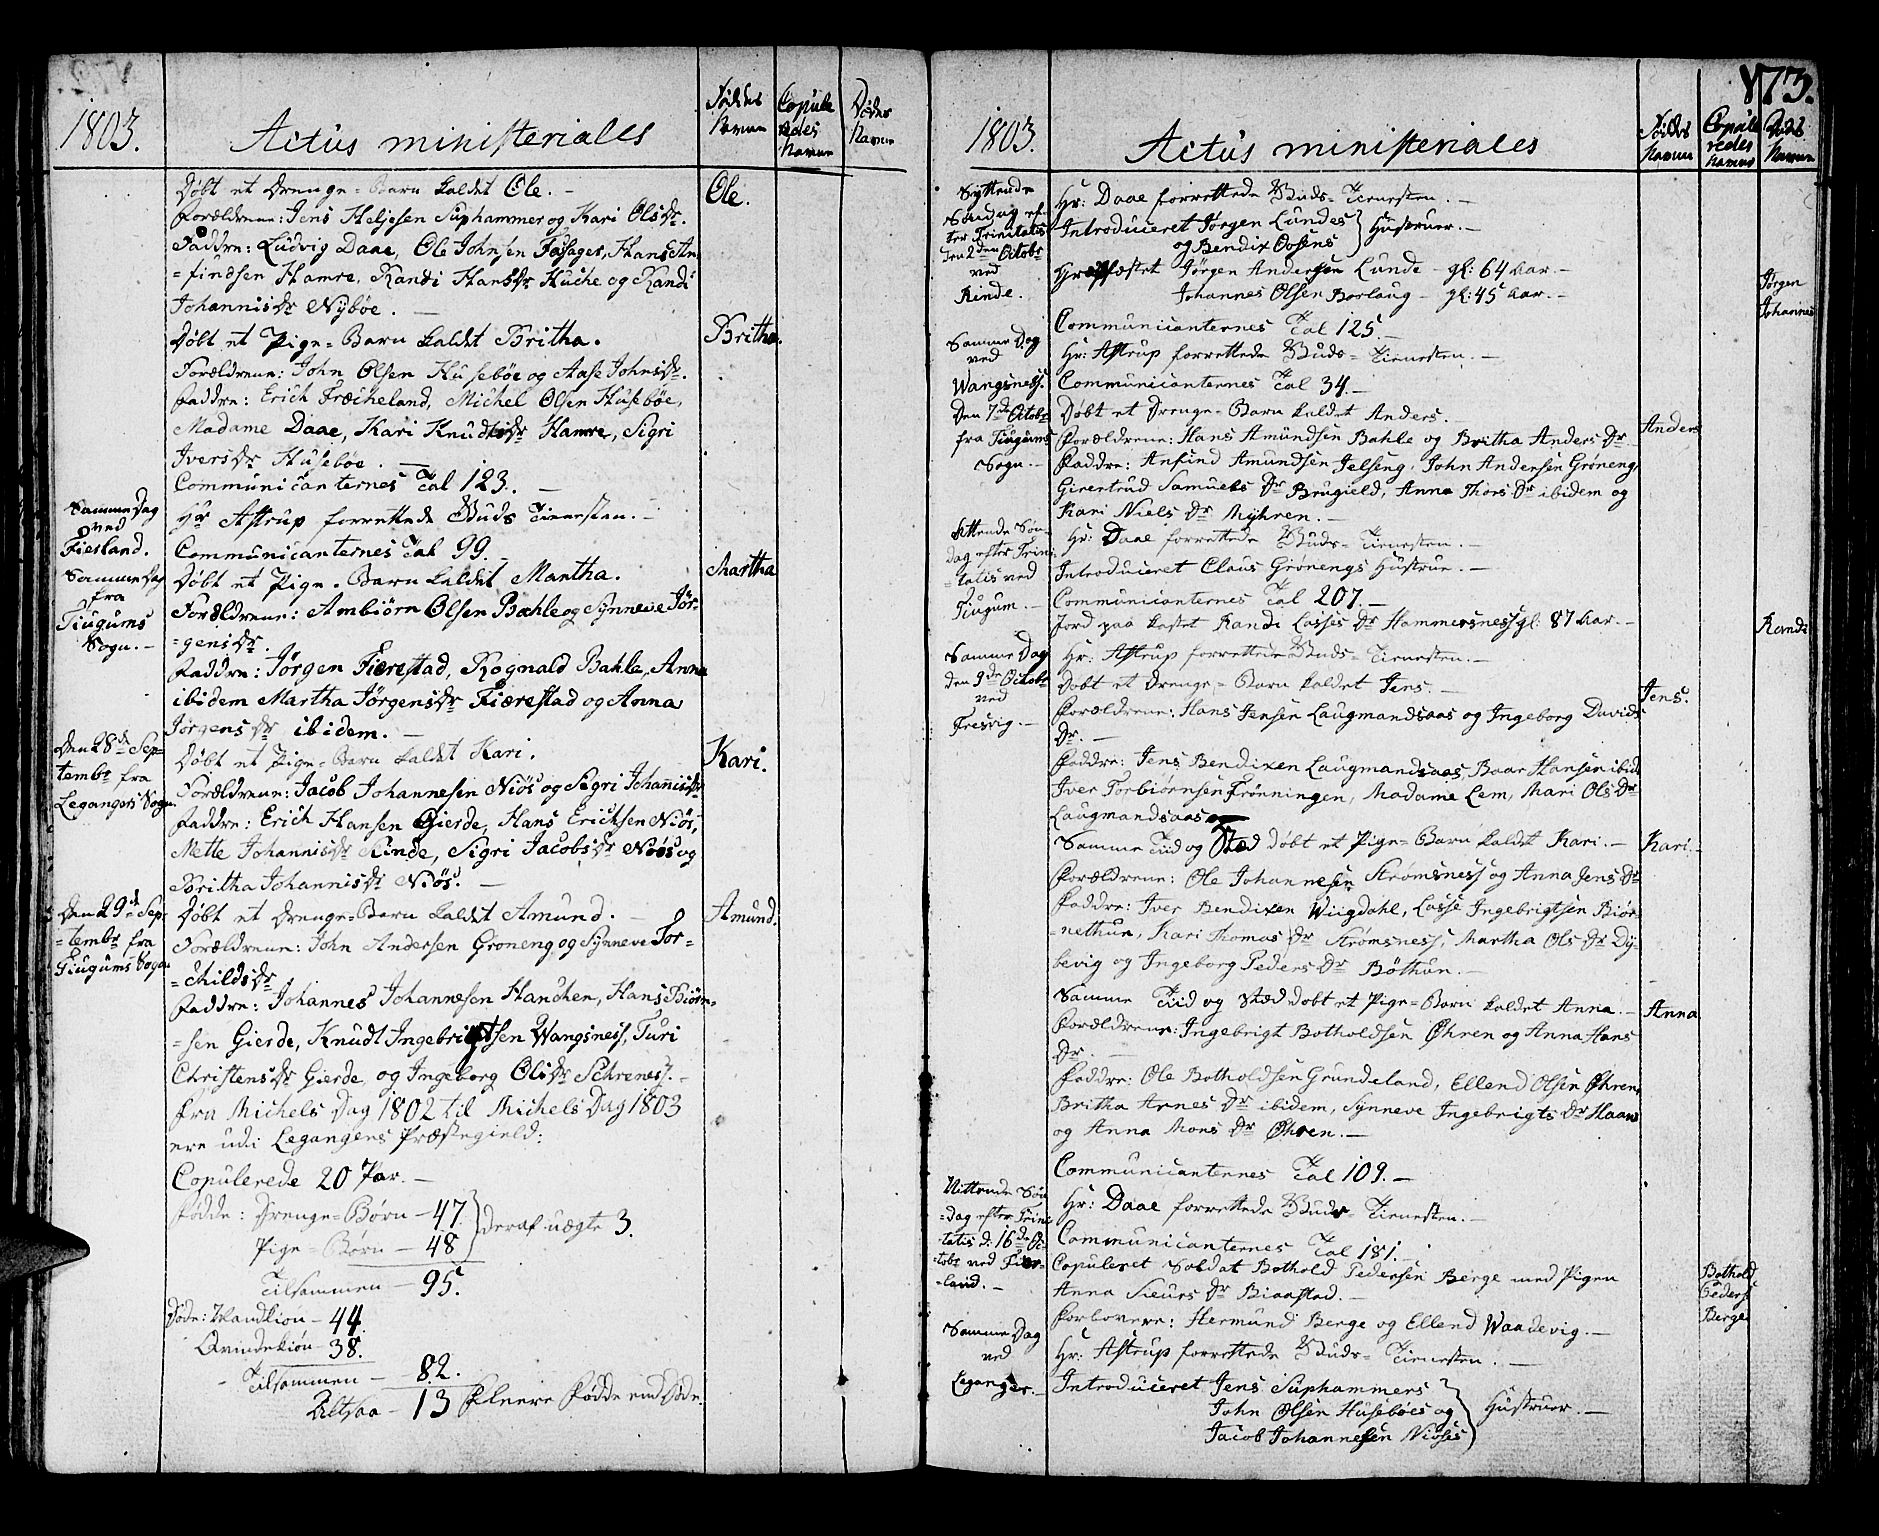 1803.
Actus ministeriales
Føddes Navne
Copule redes Navne
Dødes Navne
Døbt et Drenge-Barn kaldet Ole. -
Forældrene: Jens Heljesen Suphammer og Kari Olsdr.
Faddre: Ludvig Daae, Ole Johnsen Hans An-
=findsen Hamre, Randi Hansdr Huche og Randi
Johannisdr Nybøe. -
Ole.
Døbt et Pige-Barn kaldet Britha.
Forældrene: John Olsen Husebøe og Aase Johnsdr.
Faddre: Erich Fræcheland, Michel Olsen Husebøe,
Madame Daae, Kari Knudtsdr Hamre, Sigri
Iversdr Husebøe. -
Britha.
Communicanternes Tal 123. -
Samme Dag
ved
Fiesland.
Hr Astrup forrettede Guds Tienesten. -
Communicanternes Tal 99. -
Samme Dag
fra
Tiugums
Sogn. -
Døbt et Pige-Barn kaldet Martha.
Forældrene: Ambiørn Olsen Bahle og Synneve Jør-
=gensdr.
Faddre: Jørgen Fiærestad, Rognald Bahle, Anna
ibidem Martha Jørgensdr Fiærestad og Anna
Jørgensdr ibidem. -
Martha
Den 28de Sep-
tembr fra
Legangers Sogn.
Døbt et Pige-Barn kaldet Kari.
Forældrene: Jacob Johannesen Niøs og Sigri Johannisdr
Faddre: Erich Hansen Gierde, Hans Erichsen Niøs,
Mette Johannisdr Rinde, Sigri Jacobsdr Niøs og
Britha Johannisdr Niøs. -
Kari.
Den 29de Sep-
=tembr fra
Tiugums Sogn
Døbt et Drenge-Barn kaldet Amund. -
Forældrene: John Andersen Grøneng og Synneve Tor-
=childsdr
Faddre: Johannes Johannesen Hanchen, Hans Biørn-
=sen Gierde, Knudt Ingebrigtsen Wangsness, Turi
Christensdr Gierde, og Ingeborg Olsdr Schreness. -
Amund.
Fra Michels Dag 1802 til Michels Dag 1803
ere udi Legangers Præstegield:
Copulerede 20 Par. -
Fødde: Drenge-Børn - 47.
Pige-Børn - 48
deraf uægte 3.
Tilsammen - 95.
Døde: Mandkiøn - 44.
Qvindekiøn - 38.
Tilsammen - 82.
Altsaa - 13 fleere Fødde end Døde.
173.
1803.
Actus ministeriales
Føddes Navne
Copule redes Navne
Døds Navne
Syttende
Søndag ef-
ter Trinitatis
den 2den Octobr
ved
Rinde.
Hr: Daae forrettede Guds-Tienesten. -
Introduceret Jørgen Lundes
og Bendix Oosens
Hustruer. -
Græsfæstet Jørgen Andersen Lunde - gl: 64 Aar. -
Johannes Olsen Borlaug - gl: 45 Aar. -
Jørgen
Johannes
Communicanternes Tal 125 -
Samme Dag
ved
Wangsness.
Hr: Astrup forrettede Guds-Tienesten. -
Communicanternes Tal 34. -
Den 7de Octobr
fra Tiugums
Sogn. -
Døbt et Drenge-Barn kaldet Anders.
Forældrene: Hans Amundsen Bahle og Britha Andersdr
Faddre: Anfind Amundsen Jelseng, John Andersen Grøneng,
Girertrud Samuels Dr Brugield, Anna Thors Dr ibidem og
Kari Niels Dr Myhren. -
Anders
Attende Søn-
dag efter Trini-
=tatis ved
Tiugum. -
Hr: Daae forrettede Guds-Tienesten. -
Introduceret Claus Grønengs Hustrue. -
Communicanternes Tal 207. -
Jord paa kastet Randi Lasses Dr Hammersness gl: 87 Aar. -
Randi
Samme Dag
den 9de Octobr
ved
Fresvig. -
Hr: Astrup forrettede Guds-Tienesten. -
Døbt et Drenge-Barn kaldet Jens. -
Forældrene: Hans Jensen Laugmandsaas og Ingeborg Davids
Dr. -
Faddre: Jens Bendixen Laugmandsaas, Baar Hansen ibid:
Iver Torbiørnsen Frønningen, Madame Lem, Mari Ols Dr
Laugmandsaas
Jens.
Samme Tiid og Stæd døbt et Pige-Barn kaldet Kari. -
Forældrene: Ole Johannesen Strømsness og Anna Jens Dr
Faddre: Iver Bendixen Wiigdahl, Lasse Ingebrigtsen Biør-
=nethun, Kari Thomas Dr Strømsness, Martha Ols Dr Dy-
bevig og Ingeborg Peders Dr Bøthun. -
Kari. -
Samme Tiid og Stæd døbt et Pige-Barn kaldet Anna. -
Forældrene: Ingebrigt Botholdsen Øhren og Anna Hans
Dr. -
Faddre: Ole Botholdsen Grundeland, Ellend Olsen Øhren,
Britha Arnes Dr ibidem, Synneve Ingebrigts Dr Haave
og Anna Mons Dr Øhren. -
Anna
Communicanternes Tal 109. -
Nittende Søn-
=dag efter Trini-
=tatis d: 16de Oc-
tobr ved Fier-
=land. -
Hr: Daae forrettede Guds-Tienesten. -
Communicanternes Tal 181. -
Copuleret Soldat Bothold Pedersen Berge med Pigen
Anna Siurs Dr Biaastad. -
Forlovere: Hermund Berge og Ellend Waadevig. -
Bothold
Peders:
Berge
Samme Dag
ved
Leganger. -
Hr: Astrup forrettede Guds-Tienesten. -
Introduceret Jens Suphammers
John Olsen Husebøes og
Jacob Johannesen Niøses
Hustruer. -